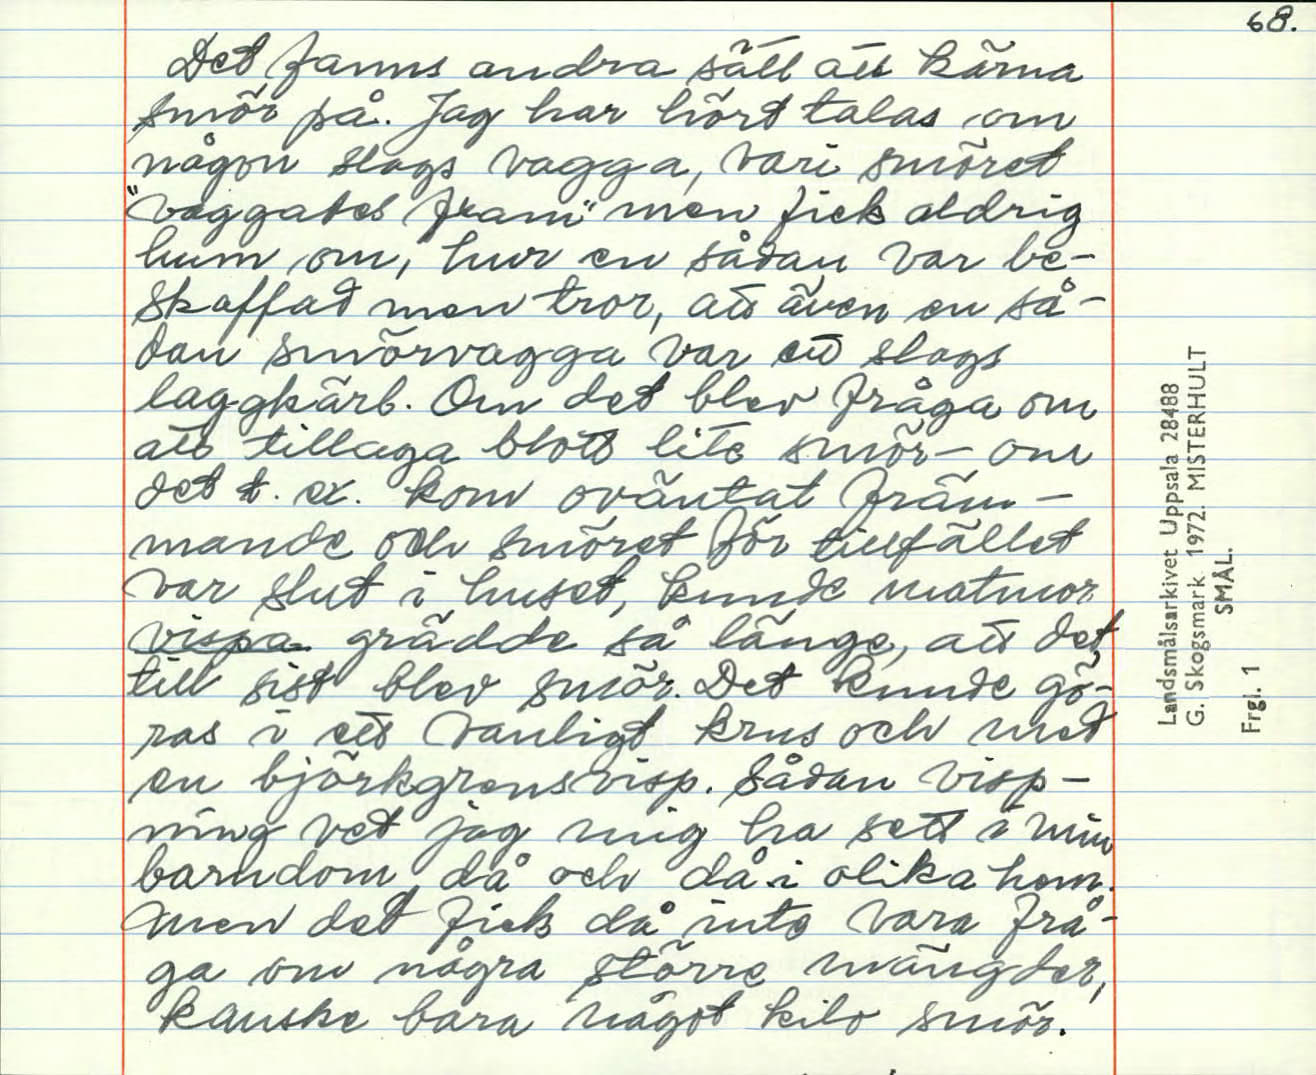 68.
Det fanns andra sätt att kärna
smör på. Jag har hört talas om
någon slags vagga, vari smöret
"vaggades fram" men fick aldrig
hum om, hur en sådan var be-
skaffad men tror, att även en så-
dan smörvagga var ett slags
laggkärl. Om det blev fråga om
att tillaga blott lite smör - om
det t. ex. kom oväntat främ-
mande och smöret för tillfället
var slut i huset, kunde matmor
vispa grädde så länge, att det
till sist blev smör. Det kunde gö-
ras i ett vanligt krus och med
en björkgrensvisp. Sådan visp-
ning vet jag mig ha sett i min
barndom då och då i olika hem.
Men det fick då inte vara frå-
ga om några större mängder,
kanske bara något kilo smör.
Landsmålsarkivet Uppsala 28488
G. Skogsmark. 1972. MISTERHULT
SMÅL.
Frgl. 1